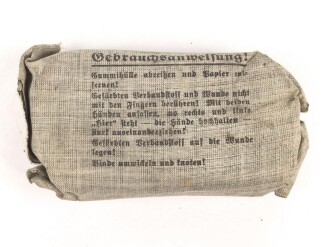 Gebrauchsanweisung!
Gummihülle abreißen und Papier ent-
fernen!
Gefärbten Verbandstoff und Wunde nicht
mit den Fingern berühren! Mit beiden
Händen anfassen, wo rechts und links
„Hier" steht — die Hände hochhalten —
stark auseinanderziehen!
Gefärbten Verbandstoff auf die Wunde
legen!
Binde umwickeln und knoten!